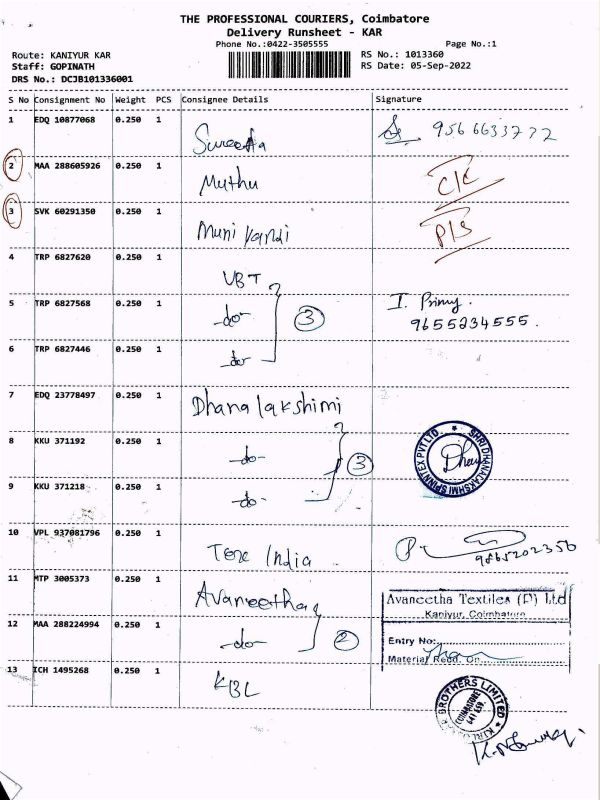 THE PROFESSIONAL COURIERS, Coimbatore
Delivery Runsheet - KAR
Phone No.:0422-3505555
Page No.:1
Route: KANIYUR KAR
RS No.: 1013360
Staff: GOPINATH
RS Date: 05-Sep-2022
DRS No.: DCJB101336001
S No Consignment No Weight PCS Consignee Details Signature
1 EDQ 10877068 0.250 1
9566633772
2 MAA 288605926 0.250 1 Muthu
3 SVK 60291350 0.250 1 Muni
4 TRP 6827620 0.250 1 VBT
5 TRP 6827568 0.250 1 -do- 3
9655234555.
6 TRP 6827446 0.250 1 -do-
7 EDQ 23778497 0.250 1 Dhana lakshimi
8 KKU 371192 0.250 1 -do- 3
SHRI DHANALAKSHMI SPINNTEX PVT LTD
9 KKU 371218 0.250 1 -do-
10 VPL 937081796 0.250 1 India
9865202356
11 MTP 3005373 0.250 1 Avaneetha
Avaneetha Textiles (P) Ltd
Kaniyur, Coimbatore
12 MAA 288224994 0.250 1 -do- 2
Entry No:
Material Recd. On
13 ICH 1495268 0.250 1 KBL
BROTHERS LIMITED
COIMBATORE
641 659